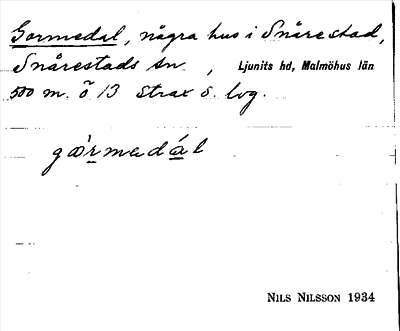 Gormedal, några hus i Snårestad,
Snårestads sn. , Ljunits hd, Malmöhus län
500 m. ö 13 strax S. lvg.
gòrmadál
NILS NILSSON 1934